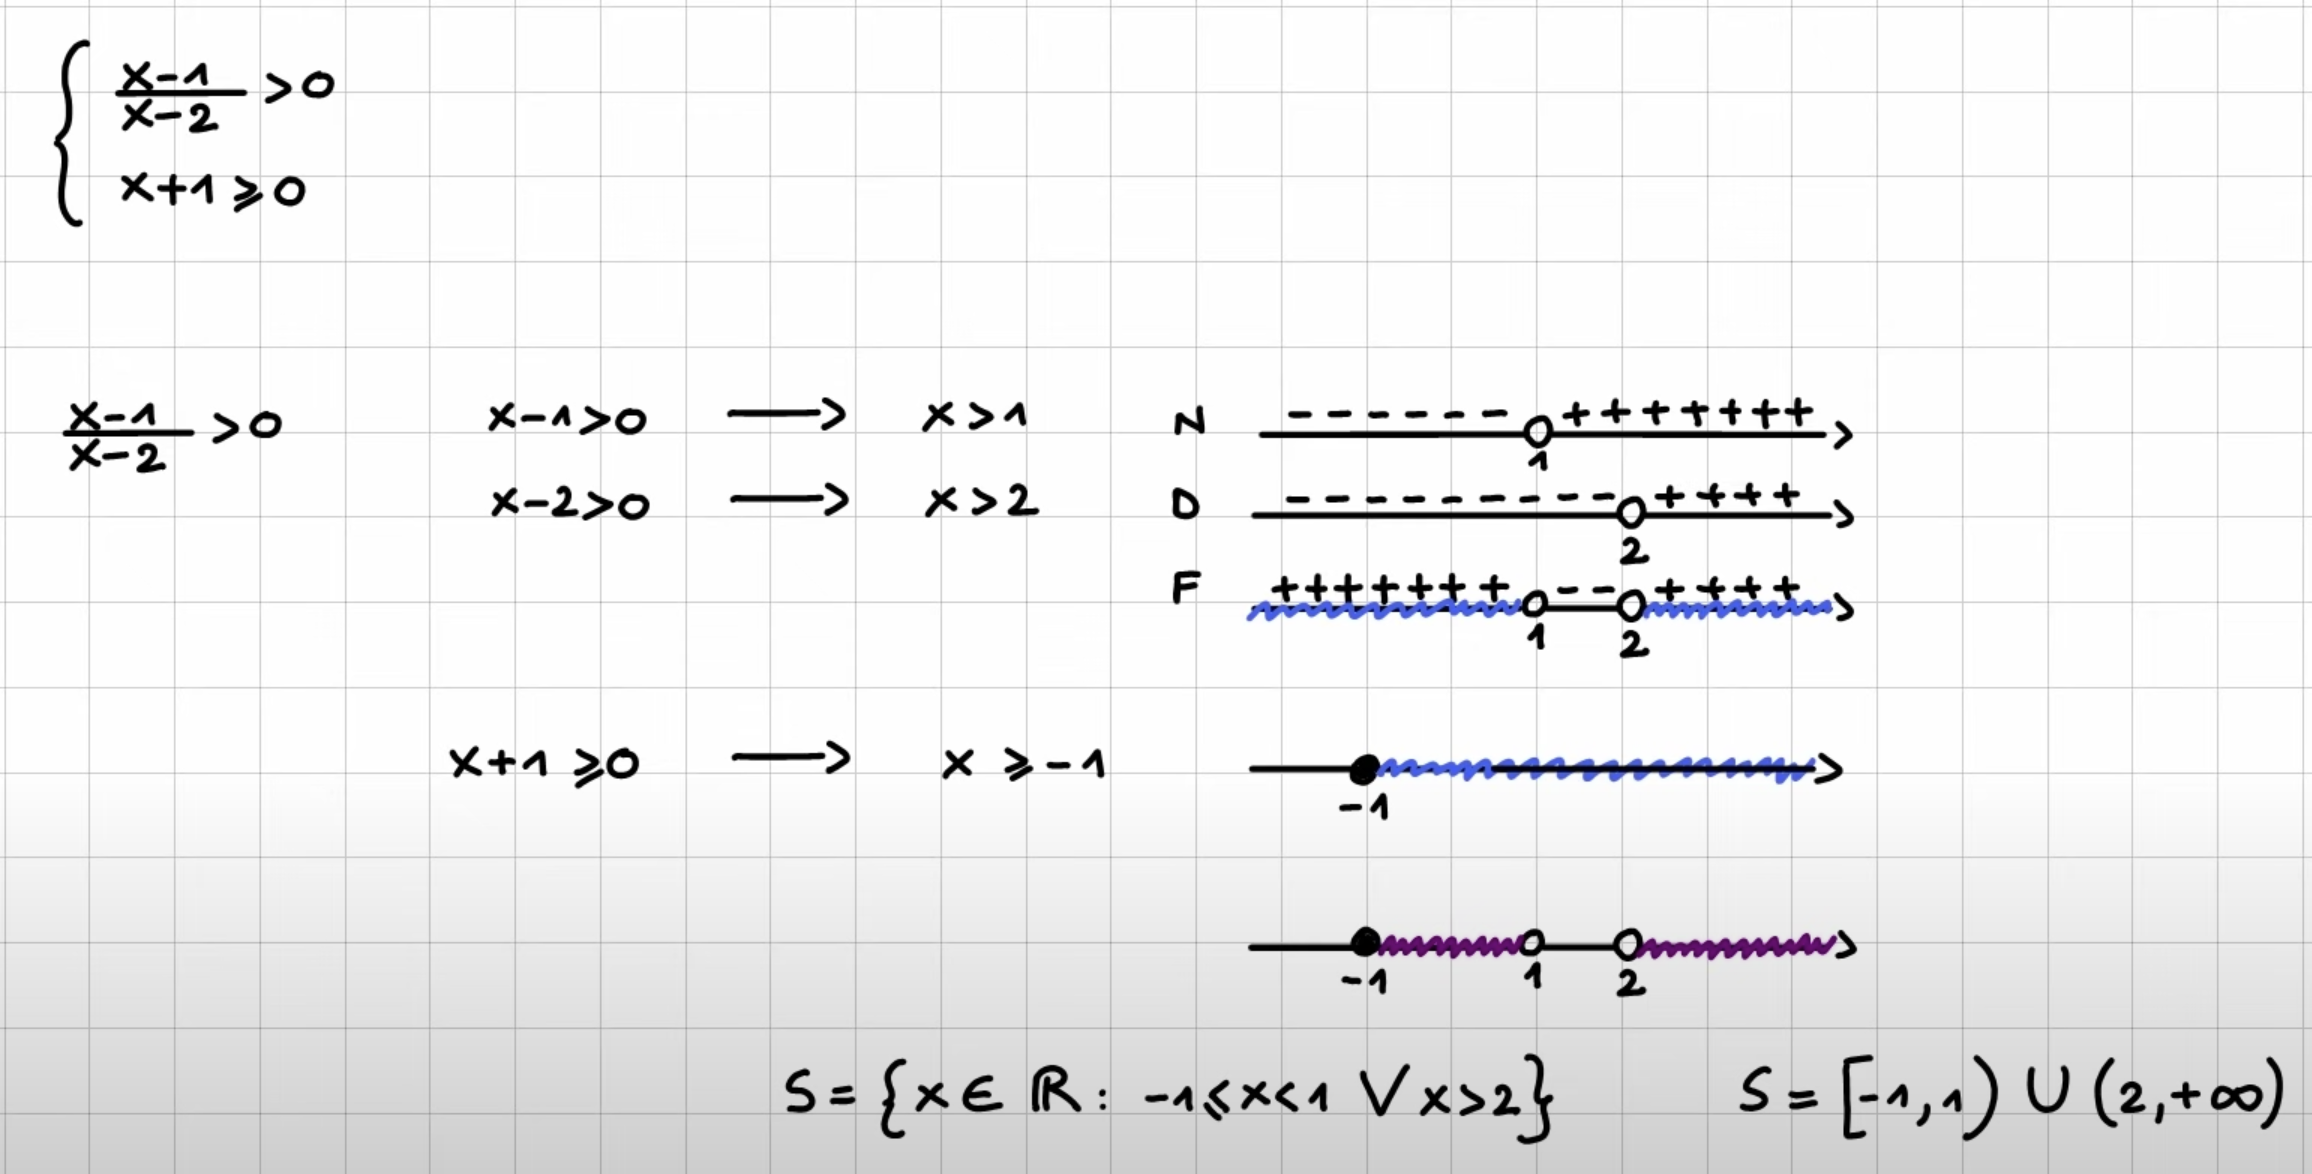 { x-1/x-2 >0
x+1⩾0
x-1/x-2 >0 x-1>0 ⟶ x>1 N - - - - - - + + + + + + +
1
x-2>0 ⟶ x>2 D - - - - - - - - - - + + + +
2
F + + + + + + + - - + + + +
1 2
x+1⩾0 ⟶ x⩾-1
-1
-1 1 2
S={x∈ℝ: -1⩽x<1 ∨ x>2} S=[-1,1)∪(2,+∞)